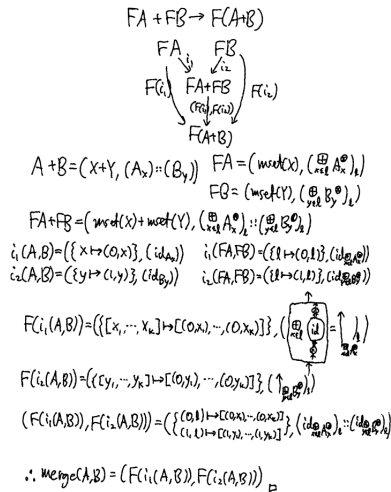 FA + FB → F(A+B)
FA FB
i₁ i₂
F(i₁) FA+FB F(i₂)
(F(i₁),F(i₂))
F(A+B)
A+B=(X+Y, (Aₓ)::(B_y)) FA=(mset(X), (⊞_{x∈l} Aₓ^⊗)_l)
FB=(mset(Y), (⊞_{y∈l} B_y^⊗)_l)
FA+FB=(mset(X)+mset(Y), (⊞_{x∈l} Aₓ^⊗)_l::(⊞_{y∈l} B_y^⊗)_l)
i₁(A,B)=({x↦(0,x)}, (id_{Aₓ})) i₁(FA,FB)=({l↦(0,l)}, (id_{⊞_{x∈l} Aₓ^⊗}))
i₂(A,B)=({y↦(1,y)}, (id_{B_y})) i₂(FA,FB)=({l↦(1,l)}, (id_{⊞_{y∈l} B_y^⊗}))
F(i₁(A,B))=({[x₁,⋯,x_k]↦[(0,x₁),⋯,(0,x_k)]}, (⊞_{x∈l} (id) = ↑)_l)
F(i₂(A,B))=({[y₁,⋯,y_k]↦[(0,y₁),⋯,(0,y_k)]}, (↑)_l)
(F(i₁(A,B)),F(i₂(A,B)))=({(0,l)↦[(0,x₁),⋯,(0,x_k)]
(1,l)↦[(1,y₁),⋯,(1,y_k)]}, (id)_l::(id)_l)
∴ merge(A,B)=(F(i₁(A,B)),F(i₂(A,B))) □